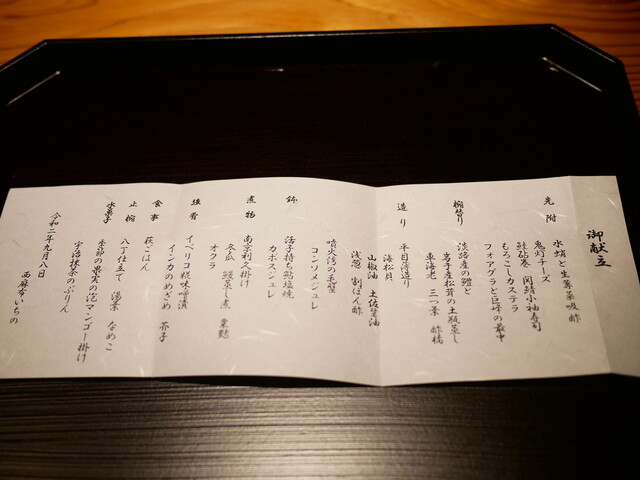 御献立
先附
水蛸と生蓴菜吸酢
鬼灯チーズ
鮭砧巻 関鯖小袖寿司
もろこしカステラ
フォアグラと巨峰の最中
椀替り
淡路産の鱧と
岩手産松茸の土瓶蒸し
車海老 三つ葉 酢橘
造り
平目薄造り
海松貝
山椒油 土佐醤油
浅葱 割ぽん酢
噴火湾の毛蟹
コンソメジュレ
鉢
活子持ち鮎塩焼
カボスジュレ
煮物
南京利久掛け
冬瓜 鰻蒸し煮 粟麩
オクラ
強肴
イベリコ糀味噌漬
インカのめざめ 芥子
食事
萩ごはん
止椀
八丁仕立て 湯葉 なめこ
水菓子
季節の果実の泡マンゴー掛け
宇治抹茶のぷりん
令和二年九月八日
西麻布いちの